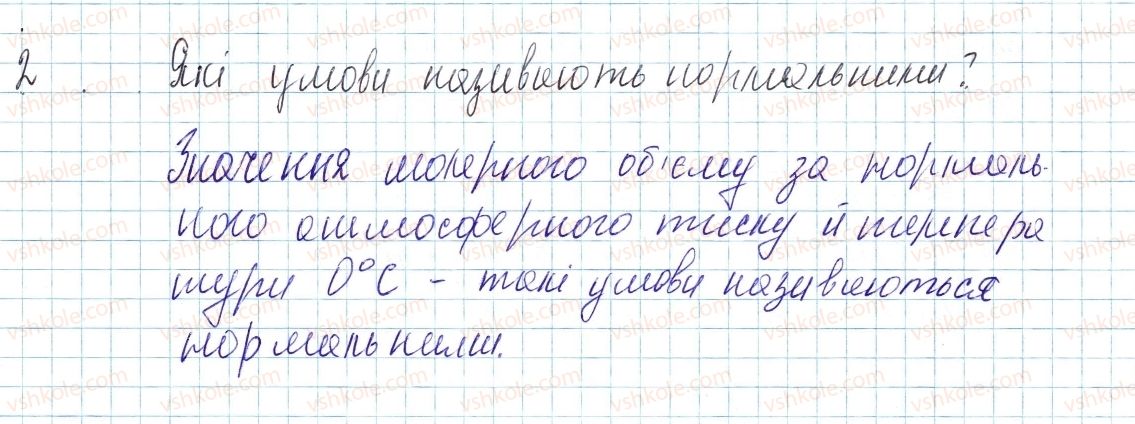 2 Які умови називають нормальними?
Значення молярного об'єму за нормаль-
ного атмосферного тиску й темпера
тури 0°С - такі умови називаються
нормальними.